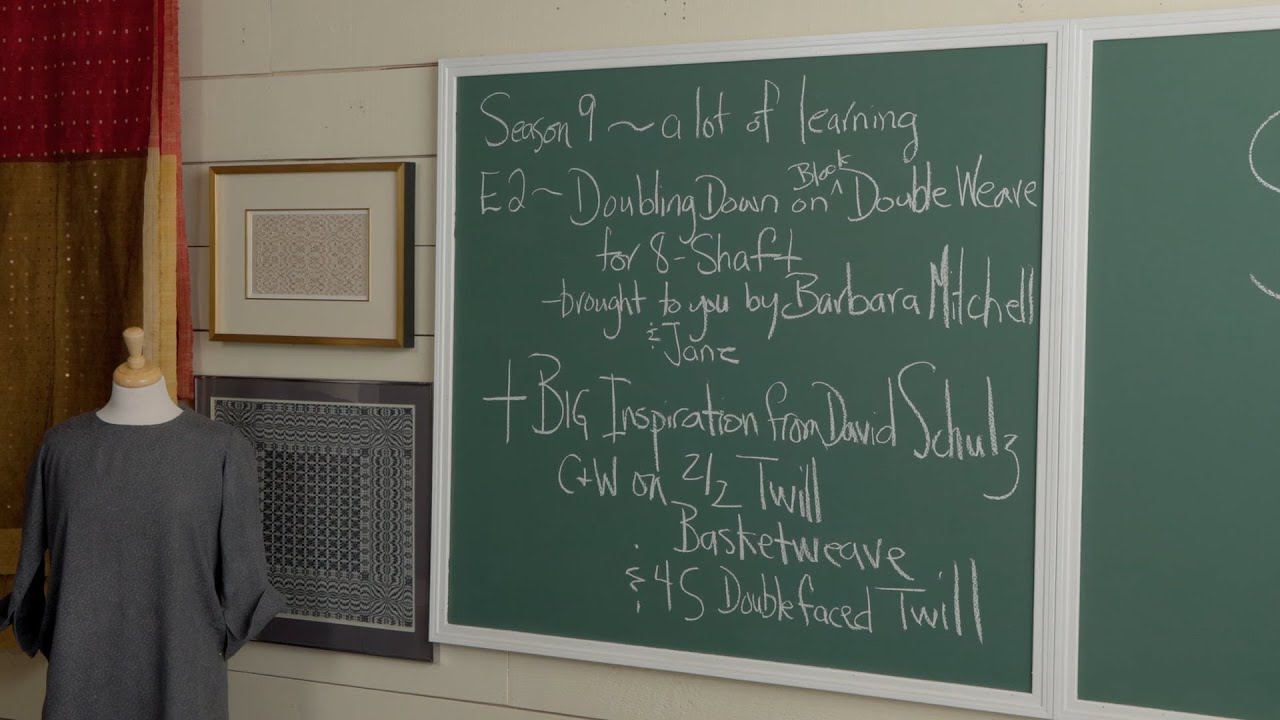 Season 9 ~ a lot of learning
E2 ~ Doubling Down on Block Double Weave
for 8-Shaft
-brought to you by Barbara Mitchell
& Jane
+ BIG Inspiration from David Schulz
C+W on 2/2 Twill
Basketweave
& 4S Doublefaced Twill